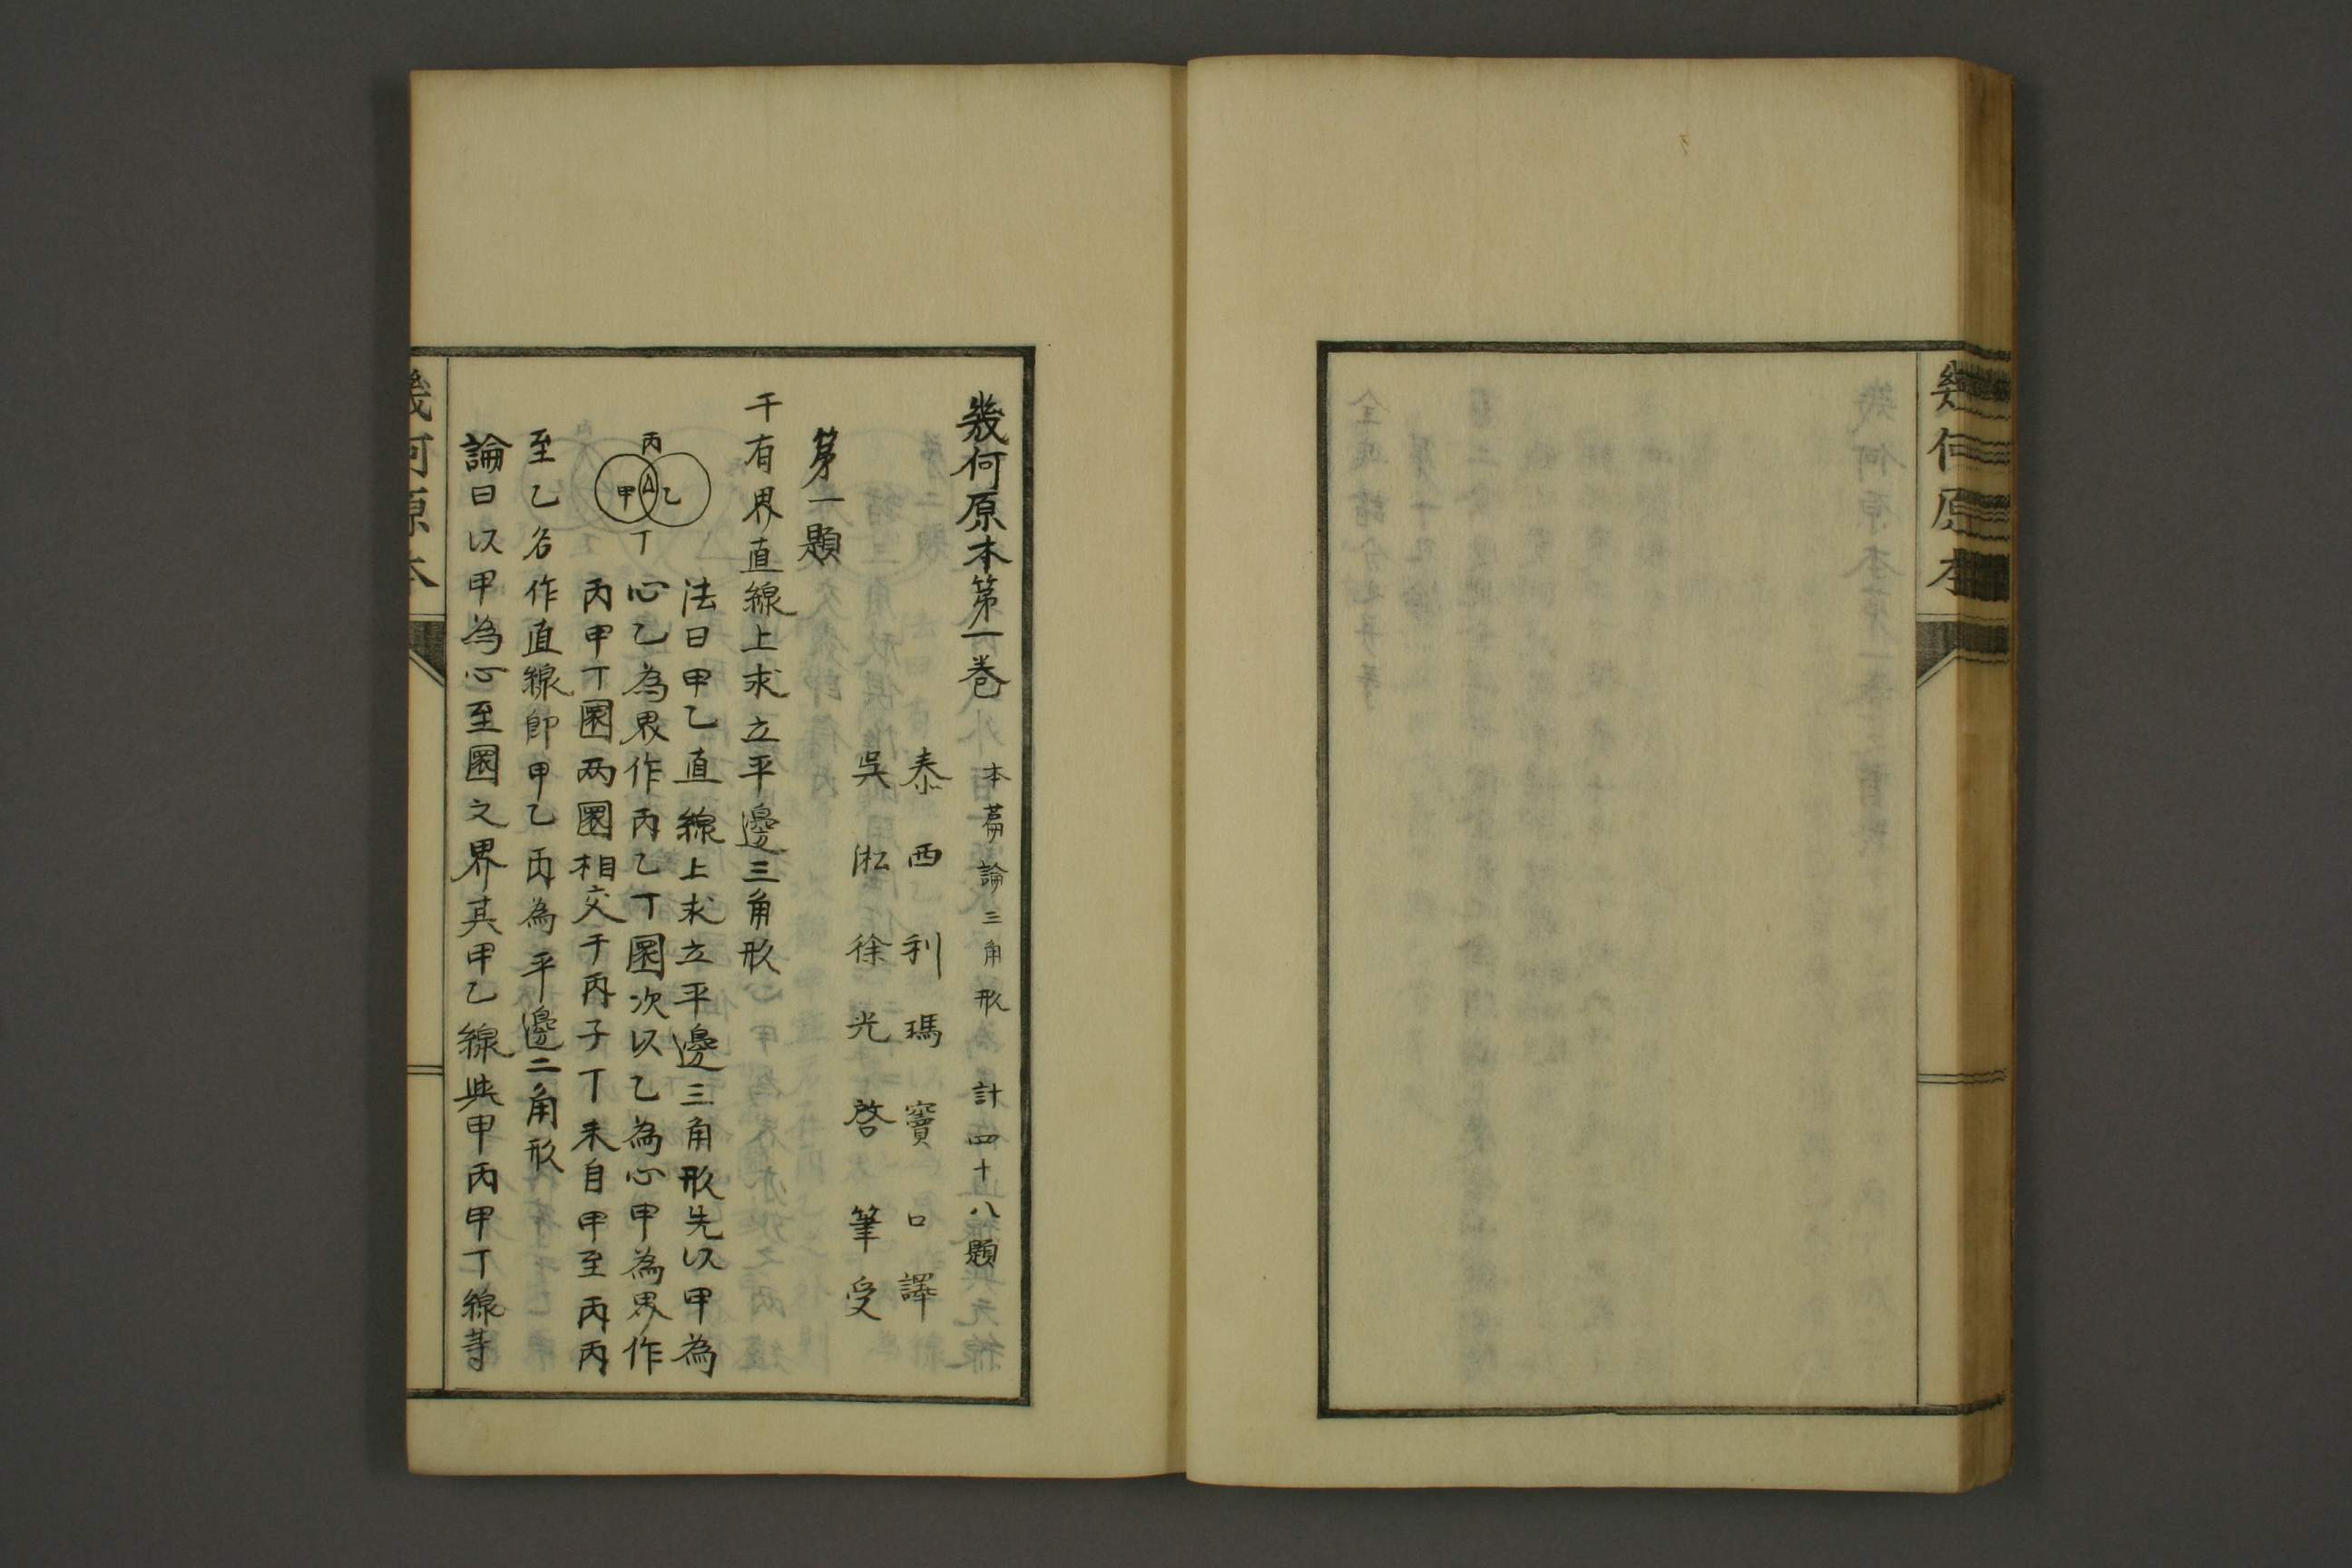 幾何原本
幾何原本第一卷 本篇論三角形 計四十八題
泰西利瑪竇口譯
吳淞徐光啓筆受
第一題
于有界直線上求立平邊三角形
法曰甲乙直線上求立平邊三角形先以甲為
丙
甲
乙
丁
心乙為界作丙乙丁圜次以乙為心甲為界作
丙甲丁圜两圜相交于丙子丁末自甲至丙丙
至乙各作直線即甲乙丙為平邊二角形
論曰以甲為心至圜之界其甲乙線與甲丙甲丁線等
幾何原本